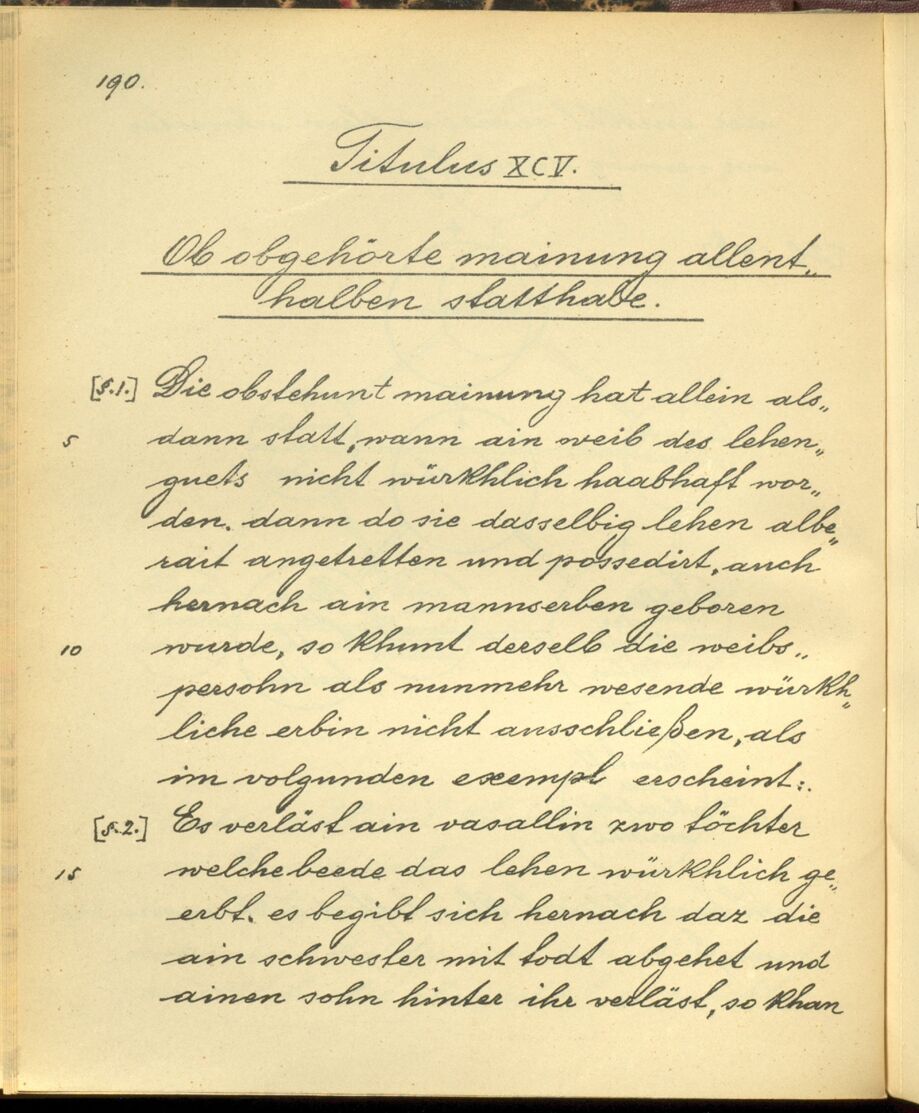 190.
Titulus XCV.
Ob obgehörte mainung allent„
halben statthabe.
[§.1.] Die obstehunt mainung hat allein als„
5 dann statt, wann ain weib des lehen„
guets nicht würkhlich haabhaft wor„
den. dann do sie dasselbig lehen albe„
rait angetretten und possedirt, auch
hernach ain mannserben geboren
10 wurde, so khunt derselb die weibs„
persohn als nunmehr wesende würkh„
liche erbin nicht ausschließen, als
im volgunden exempl erscheint:.
[§.2.] Es verläst ain vasallin zwo töchter
15 welche beede das lehen würkhlich ge„
erbt. es begibt sich hernach daz die
ain schwester mit todt abgehet und
ainen sohn hinter ihr verläst, so khan